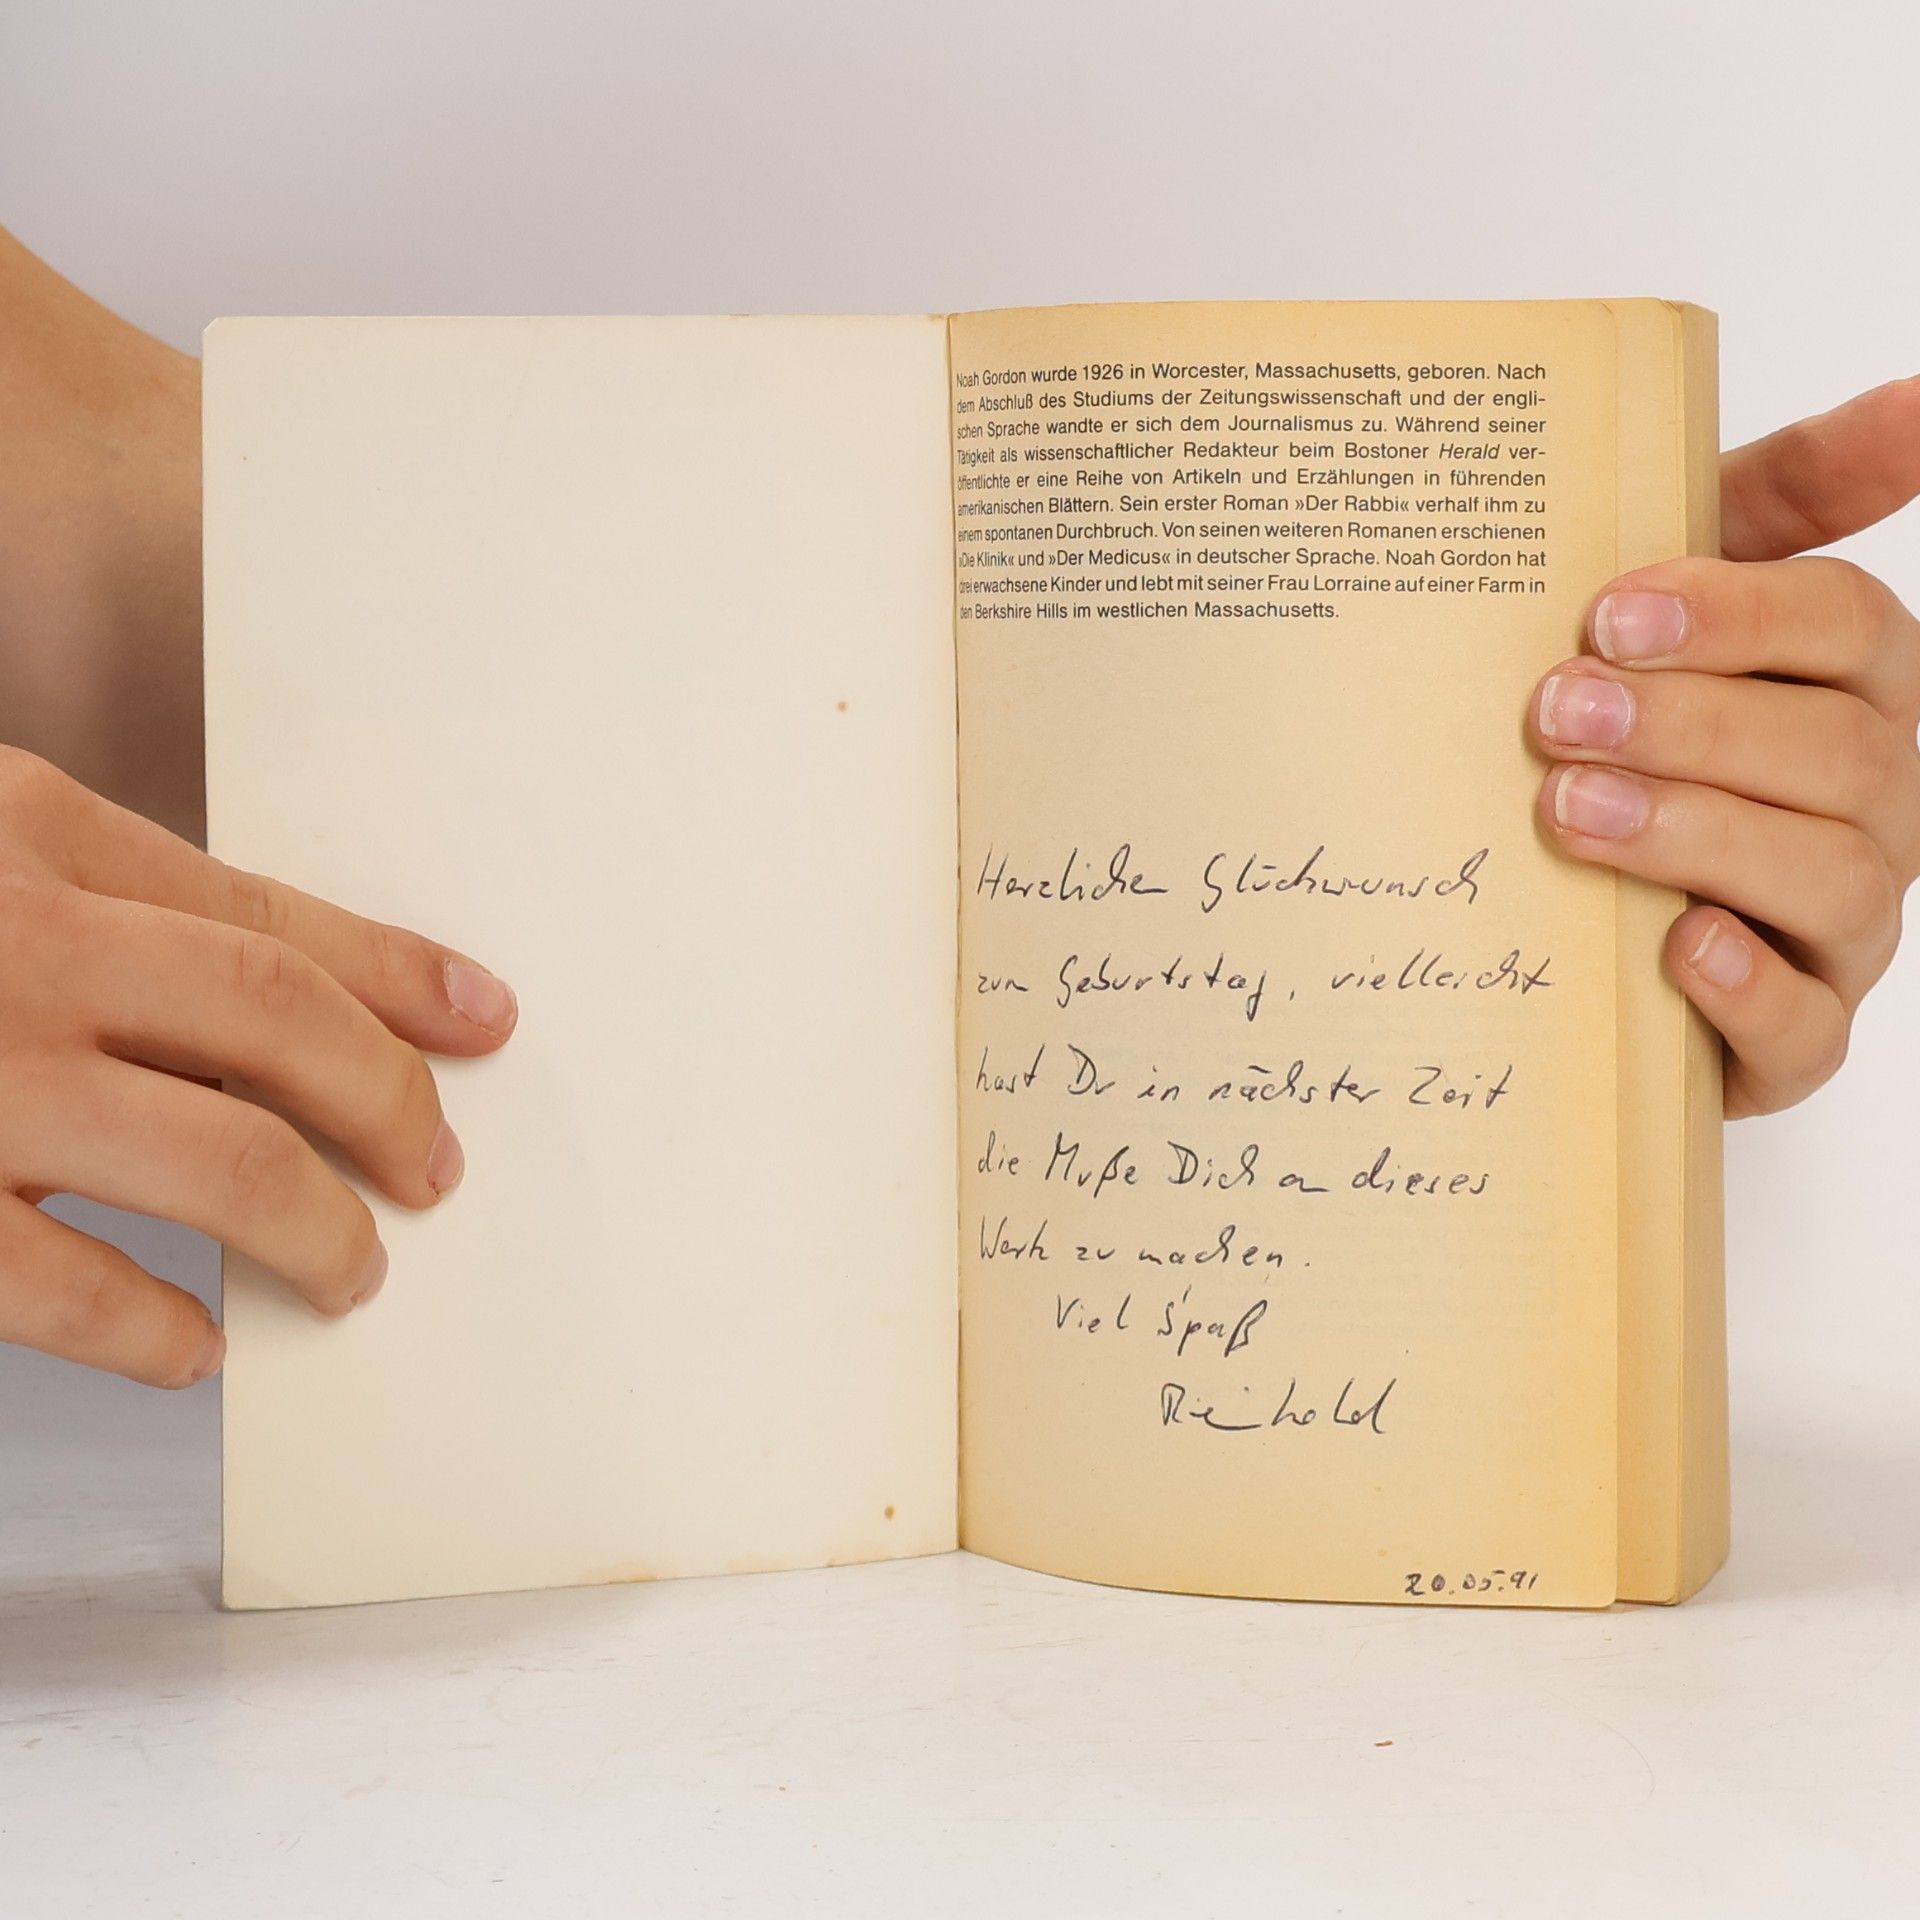 Noah Gordon wurde 1926 in Worcester, Massachusetts, geboren. Nach
dem Abschluß des Studiums der Zeitungswissenschaft und der engli-
schen Sprache wandte er sich dem Journalismus zu. Während seiner
Tätigkeit als wissenschaftlicher Redakteur beim Bostoner Herald ver-
öffentlichte er eine Reihe von Artikeln und Erzählungen in führenden
amerikanischen Blättern. Sein erster Roman »Der Rabbi« verhalf ihm zu
einem spontanen Durchbruch. Von seinen weiteren Romanen erschienen
»Die Klinik« und »Der Medicus« in deutscher Sprache. Noah Gordon hat
drei erwachsene Kinder und lebt mit seiner Frau Lorraine auf einer Farm in
den Berkshire Hills im westlichen Massachusetts.
Herzlichen Glückwunsch
zum Geburtstag, vielleicht
hast Du in nächster Zeit
die Muße Dich an dieses
Werk zu machen.
Viel Spaß
Reinhold
20.05.91